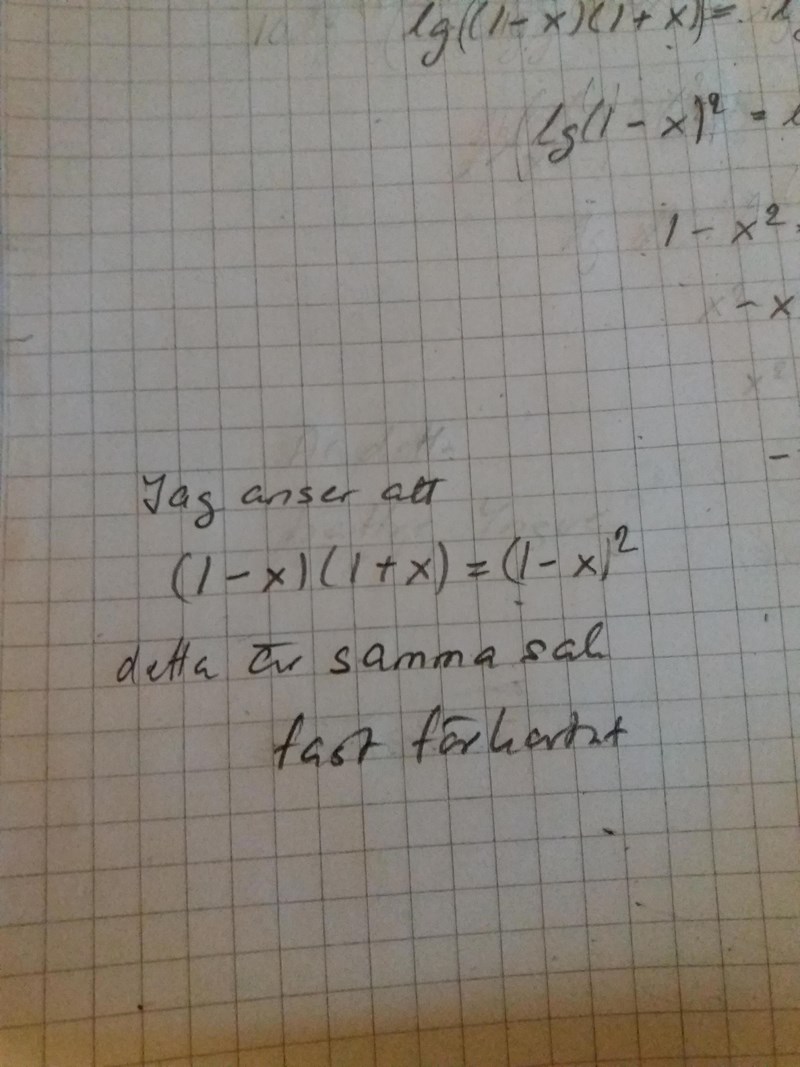 lg((1-x)(1+x)=
lg(1-x)² =
1-x² =
-x
x²
-
Jag anser att
(1-x)(1+x)=(1-x)²
detta är samma sak
fast förkortat